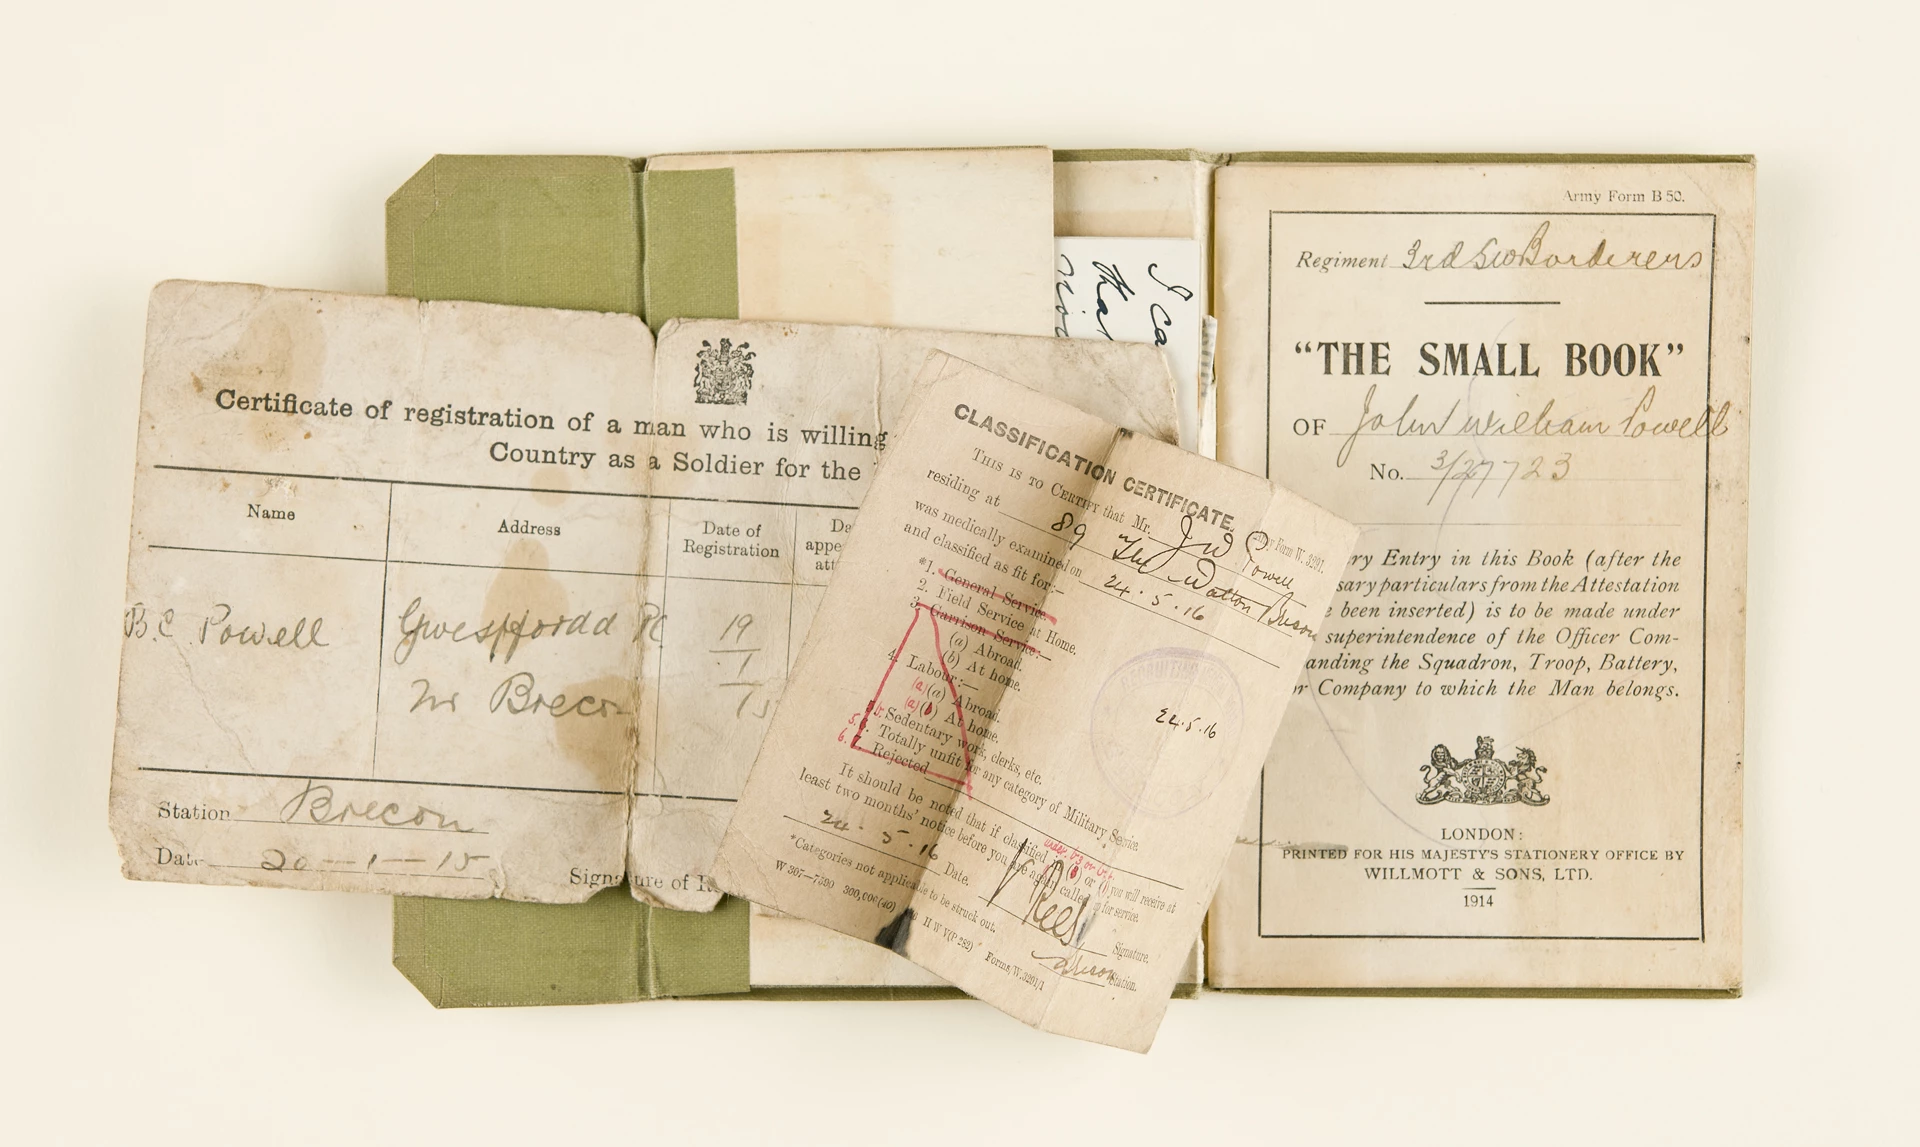 Certificate of registration of a man who is willing
Country as a Soldier for the
Name
Address
Date of
Registration
Da
appe
att
B.C Powell
Gwespfordd
Nr Brecon
19
1
15
Station Brecon
Date 20-1-15
Signature of R
I ca
that
CLASSIFICATION CERTIFICATE.
Army Form W. 3291.
THIS IS TO CERTIFY that Mr. J W Powell
residing at 89 The Watton Brecon
was medically examined on 24.5.16
and classified as fit for:—
*1. General Service.
2. Field Service at Home.
3. Garrison Service:—
(a) Abroad.
(b) At home.
4. Labour:—
(a) (a) Abroad.
(a) (b) At home.
5. Sedentary work, clerks, etc.
5. 6. Totally unfit for any category of Military Service.
6. 7. Rejected
24.5.16
It should be noted that if classified in (b) or you will receive at
least two months' notice before you are again called up for service.
24.5.16 Date.
Rees Signature.
Brecon Station.
*Categories not applicable to be struck out.
W 307—7390 300,000(40) H W V(P 282) Forms/W.3291/1
Army Form B 50.
Regiment 3rd SW Borderers
"THE SMALL BOOK"
OF John William Powell
No. 3/27723
ry Entry in this Book (after the
sary particulars from the Attestation
e been inserted) is to be made under
superintendence of the Officer Com-
anding the Squadron, Troop, Battery,
r Company to which the Man belongs.
LONDON:
PRINTED FOR HIS MAJESTY'S STATIONERY OFFICE BY
WILLMOTT & SONS, LTD.
1914